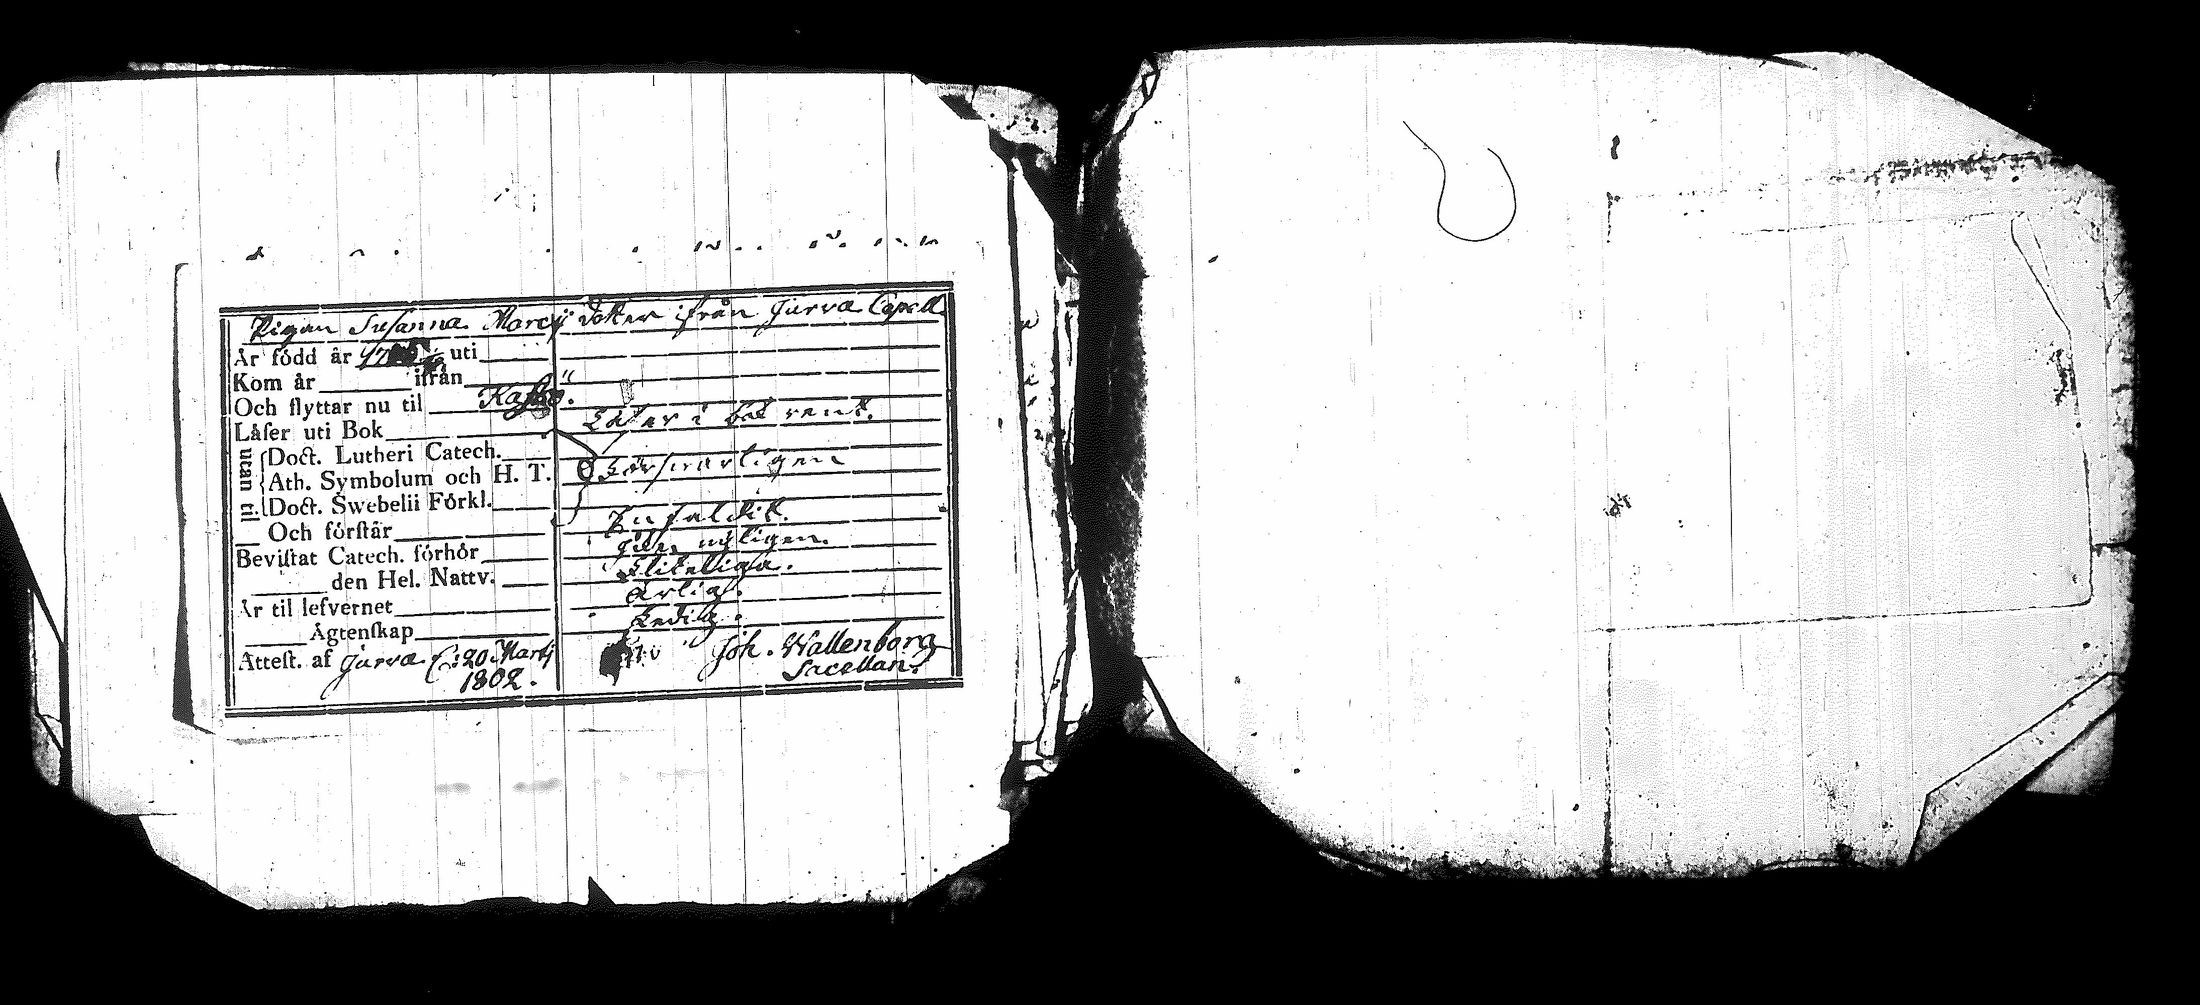 Pigan Susanna Marcij dotter ifrån Jurva Capell
Är född år 17 uti
Kom år ifrån
Och flyttar nu til Kaskö.
Låser uti Bok Låser i bok rent.
utan til Doct. Lutheri Catech.
Ath. Symbolum och H. T. Försvarligen
Doct. Swebelii Förkl.
Och förstår Enfaldit.
Bevistat Catech. förhör
den Hel. Nattv. Fliteliga.
Är til lefvernet Ärlig.
Ägtenskap Ledig.
Attest. af Jurva C: 20 Martij Joh. Wallenborg
1802. Sacellan.